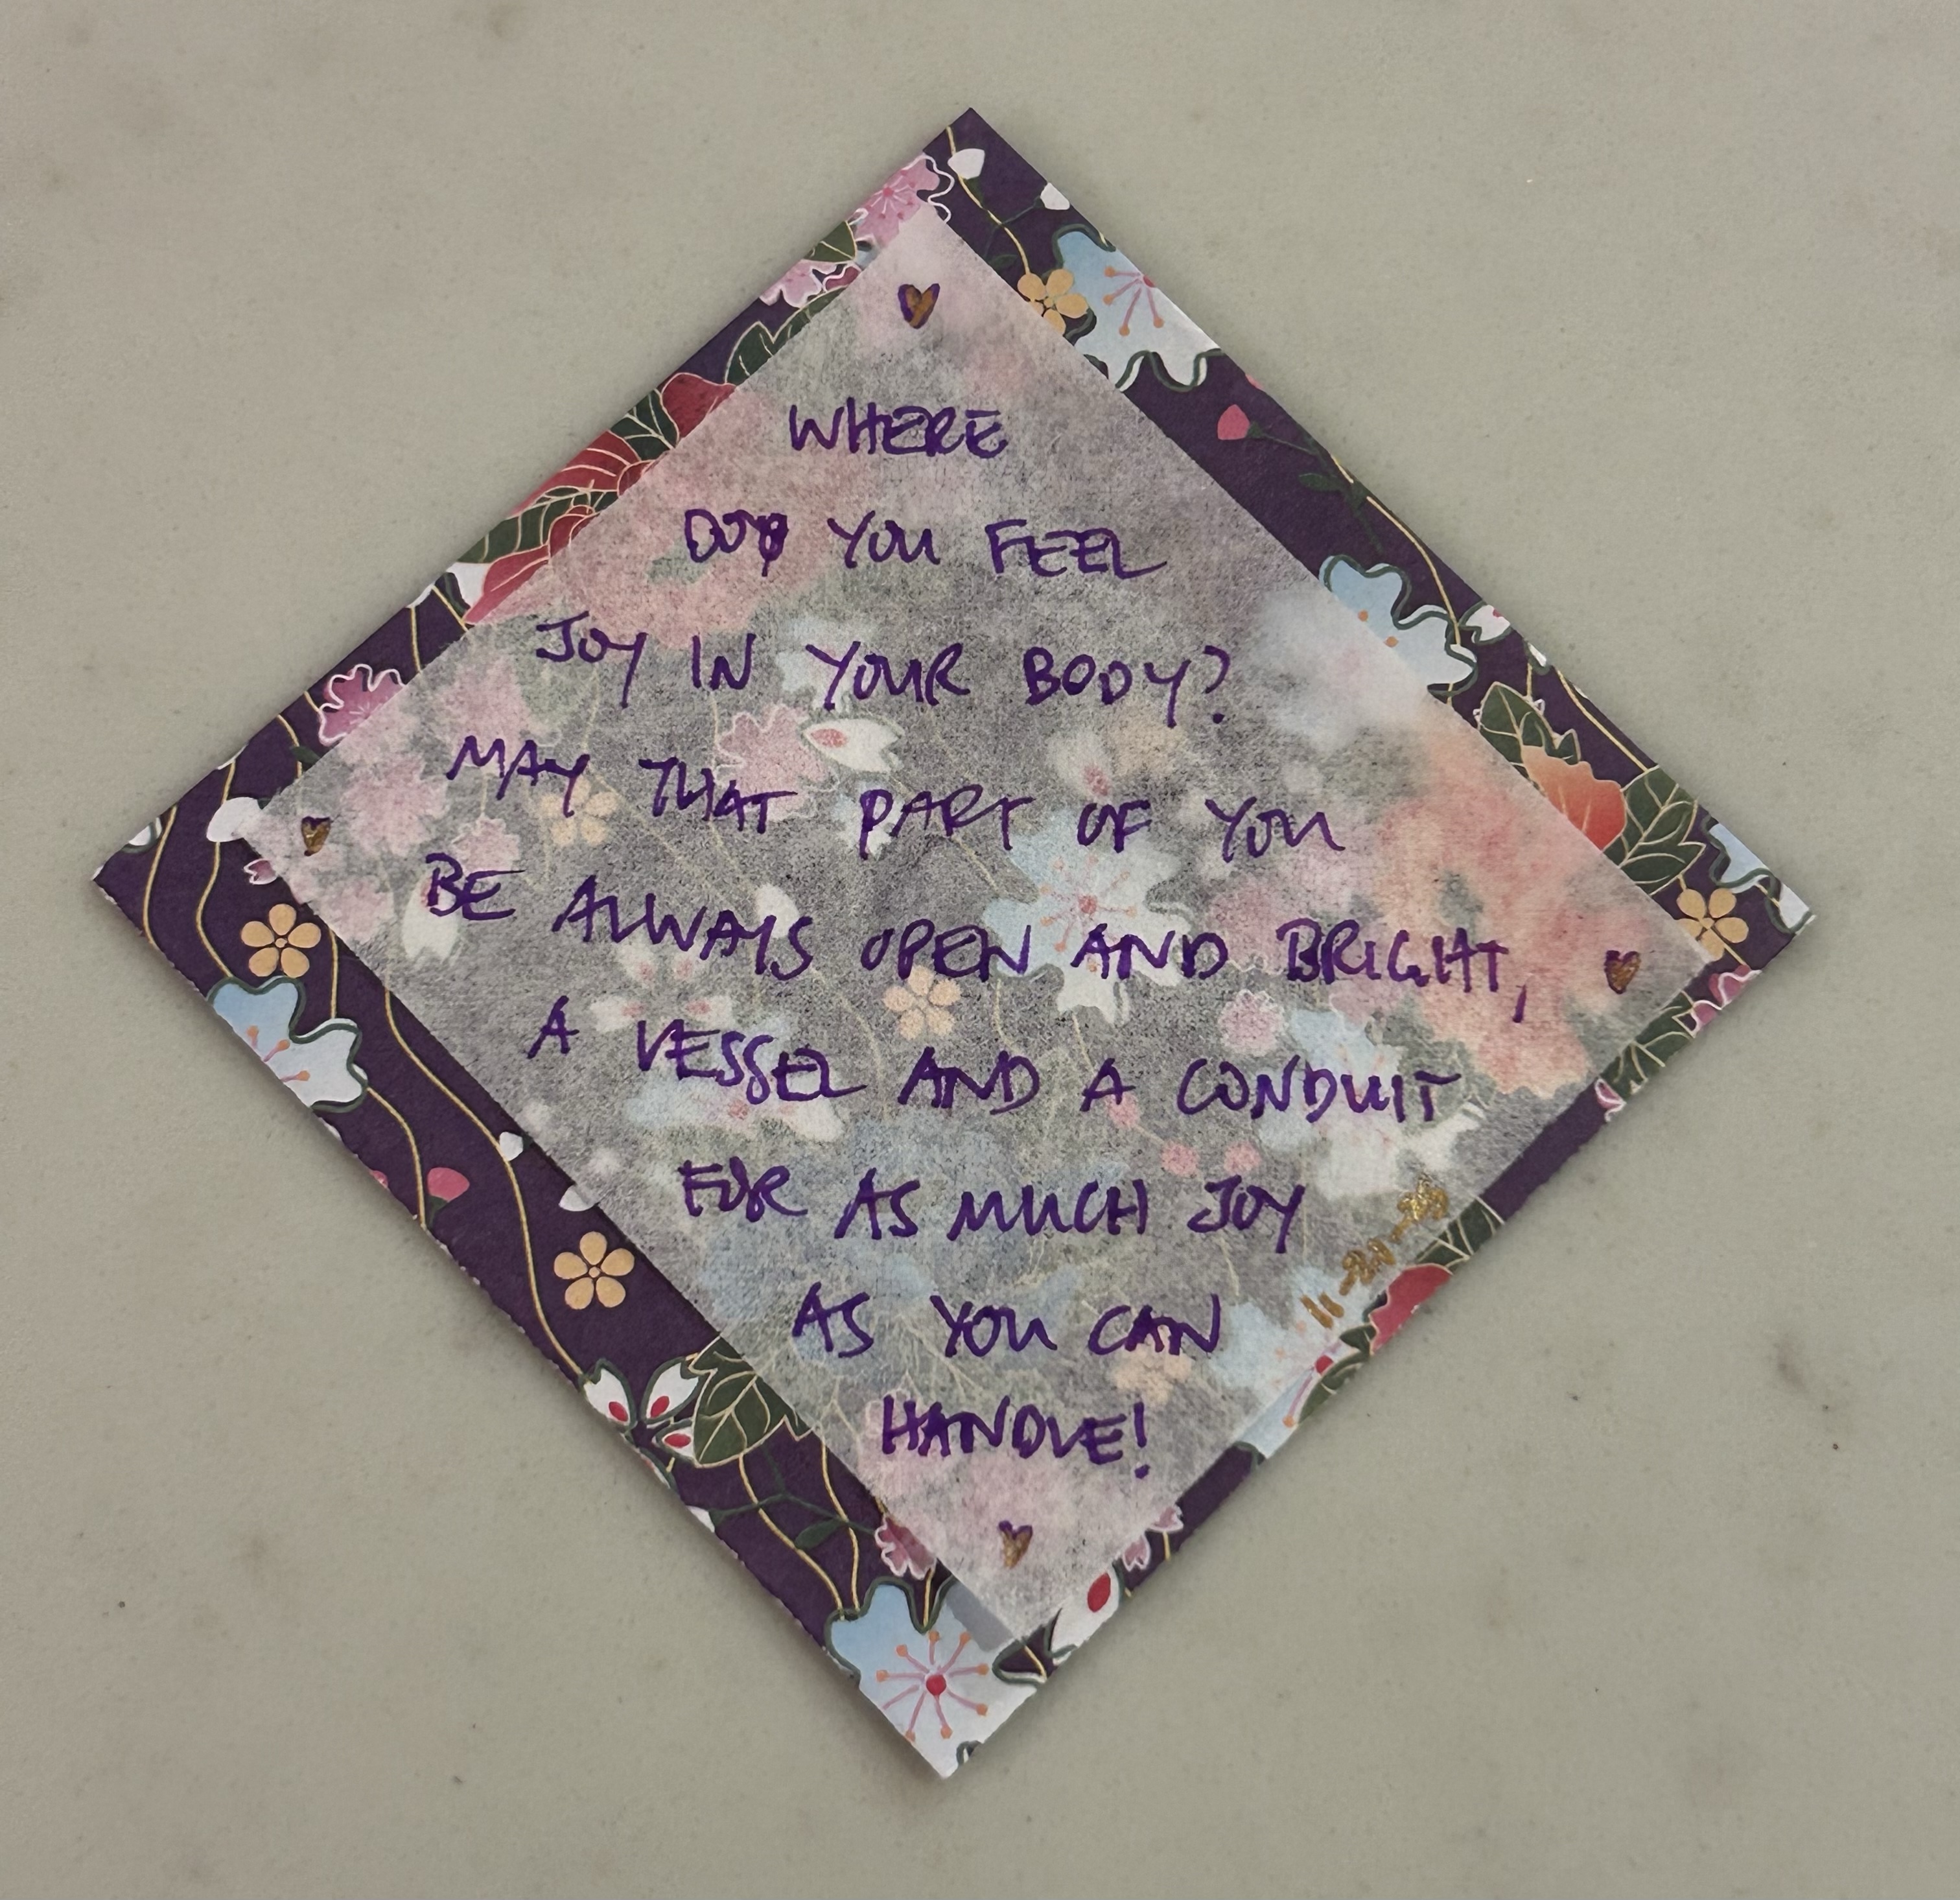 WHERE
DO YOU FEEL
JOY IN YOUR BODY?
MAY THAT PART OF YOU
BE ALWAYS OPEN AND BRIGHT,
A VESSEL AND A CONDUIT
FOR AS MUCH JOY
AS YOU CAN
HANDLE!